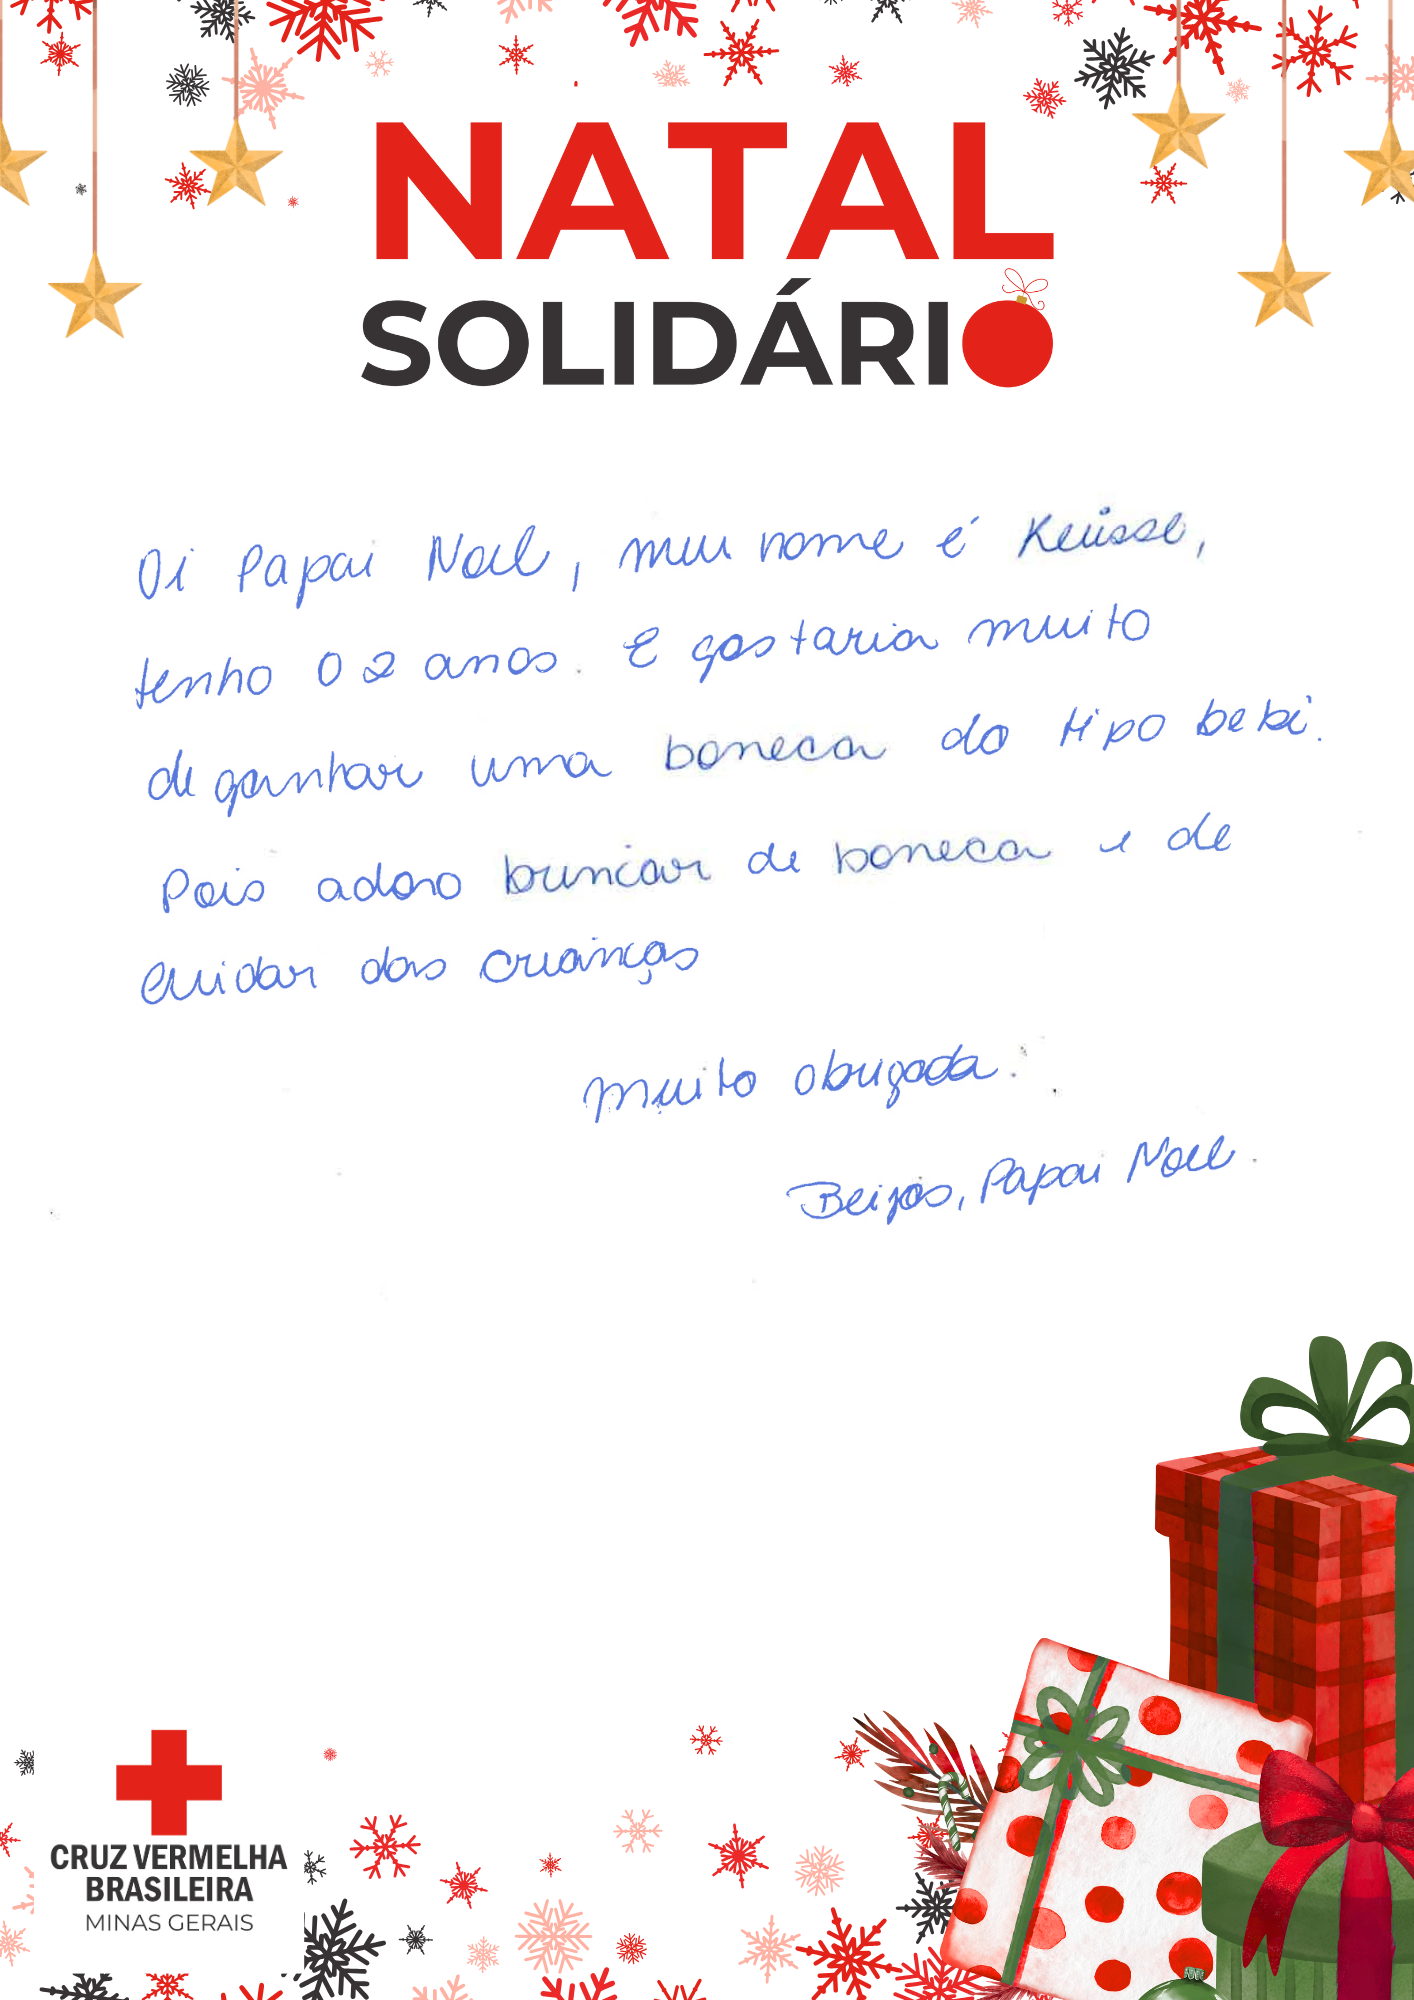 NATAL
SOLIDÁRIO
Oi Papai Noel, meu nome é Keüsse,
tenho 02 anos. E gostaria muito
de ganhar uma boneca do tipo bebê.
Pois adoro brincar de boneca e de
cuidar das crianças
muito obrigada.
Beijos, Papai Noel.
CRUZ VERMELHA
BRASILEIRA
MINAS GERAIS